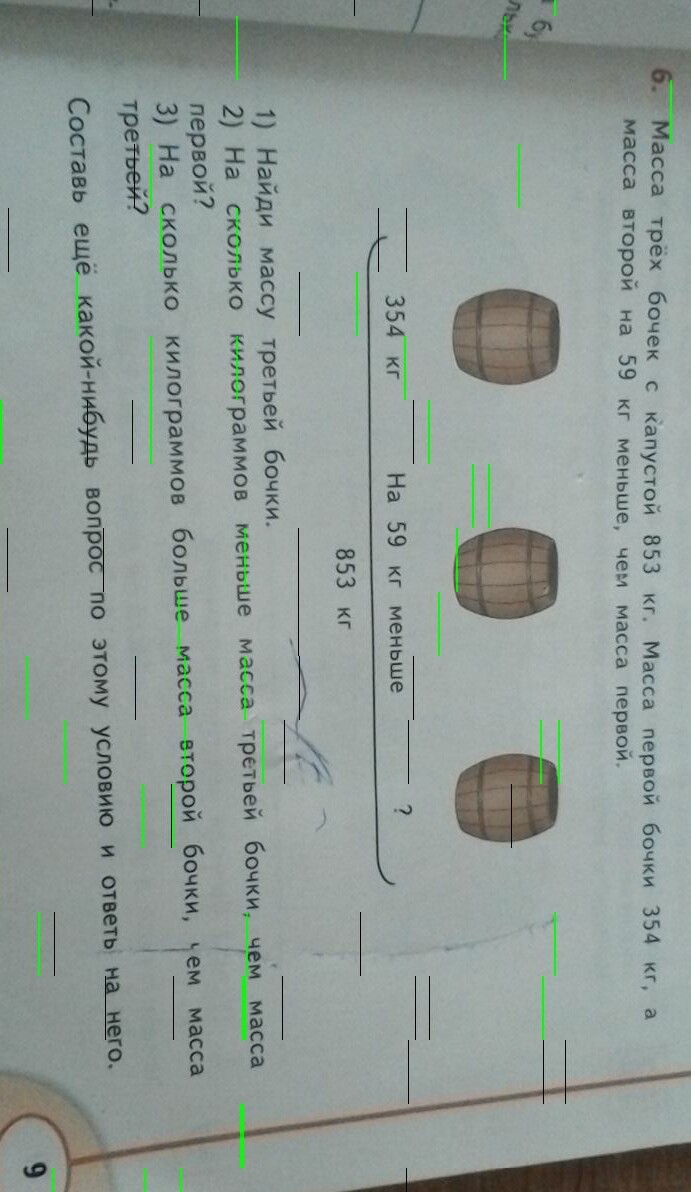 6. Масса трёх бочек с капустой 853 кг. Масса первой бочки 354 кг, а
масса второй на 59 кг меньше, чем масса первой.
354 кг На 59 кг меньше ?
853 кг
1) Найди массу третьей бочки.
2) На сколько килограммов меньше масса третьей бочки, чем масса
первой?
3) На сколько килограммов больше масса второй бочки, чем масса
третьей?
Составь ещё какой-нибудь вопрос по этому условию и ответь на него.
9